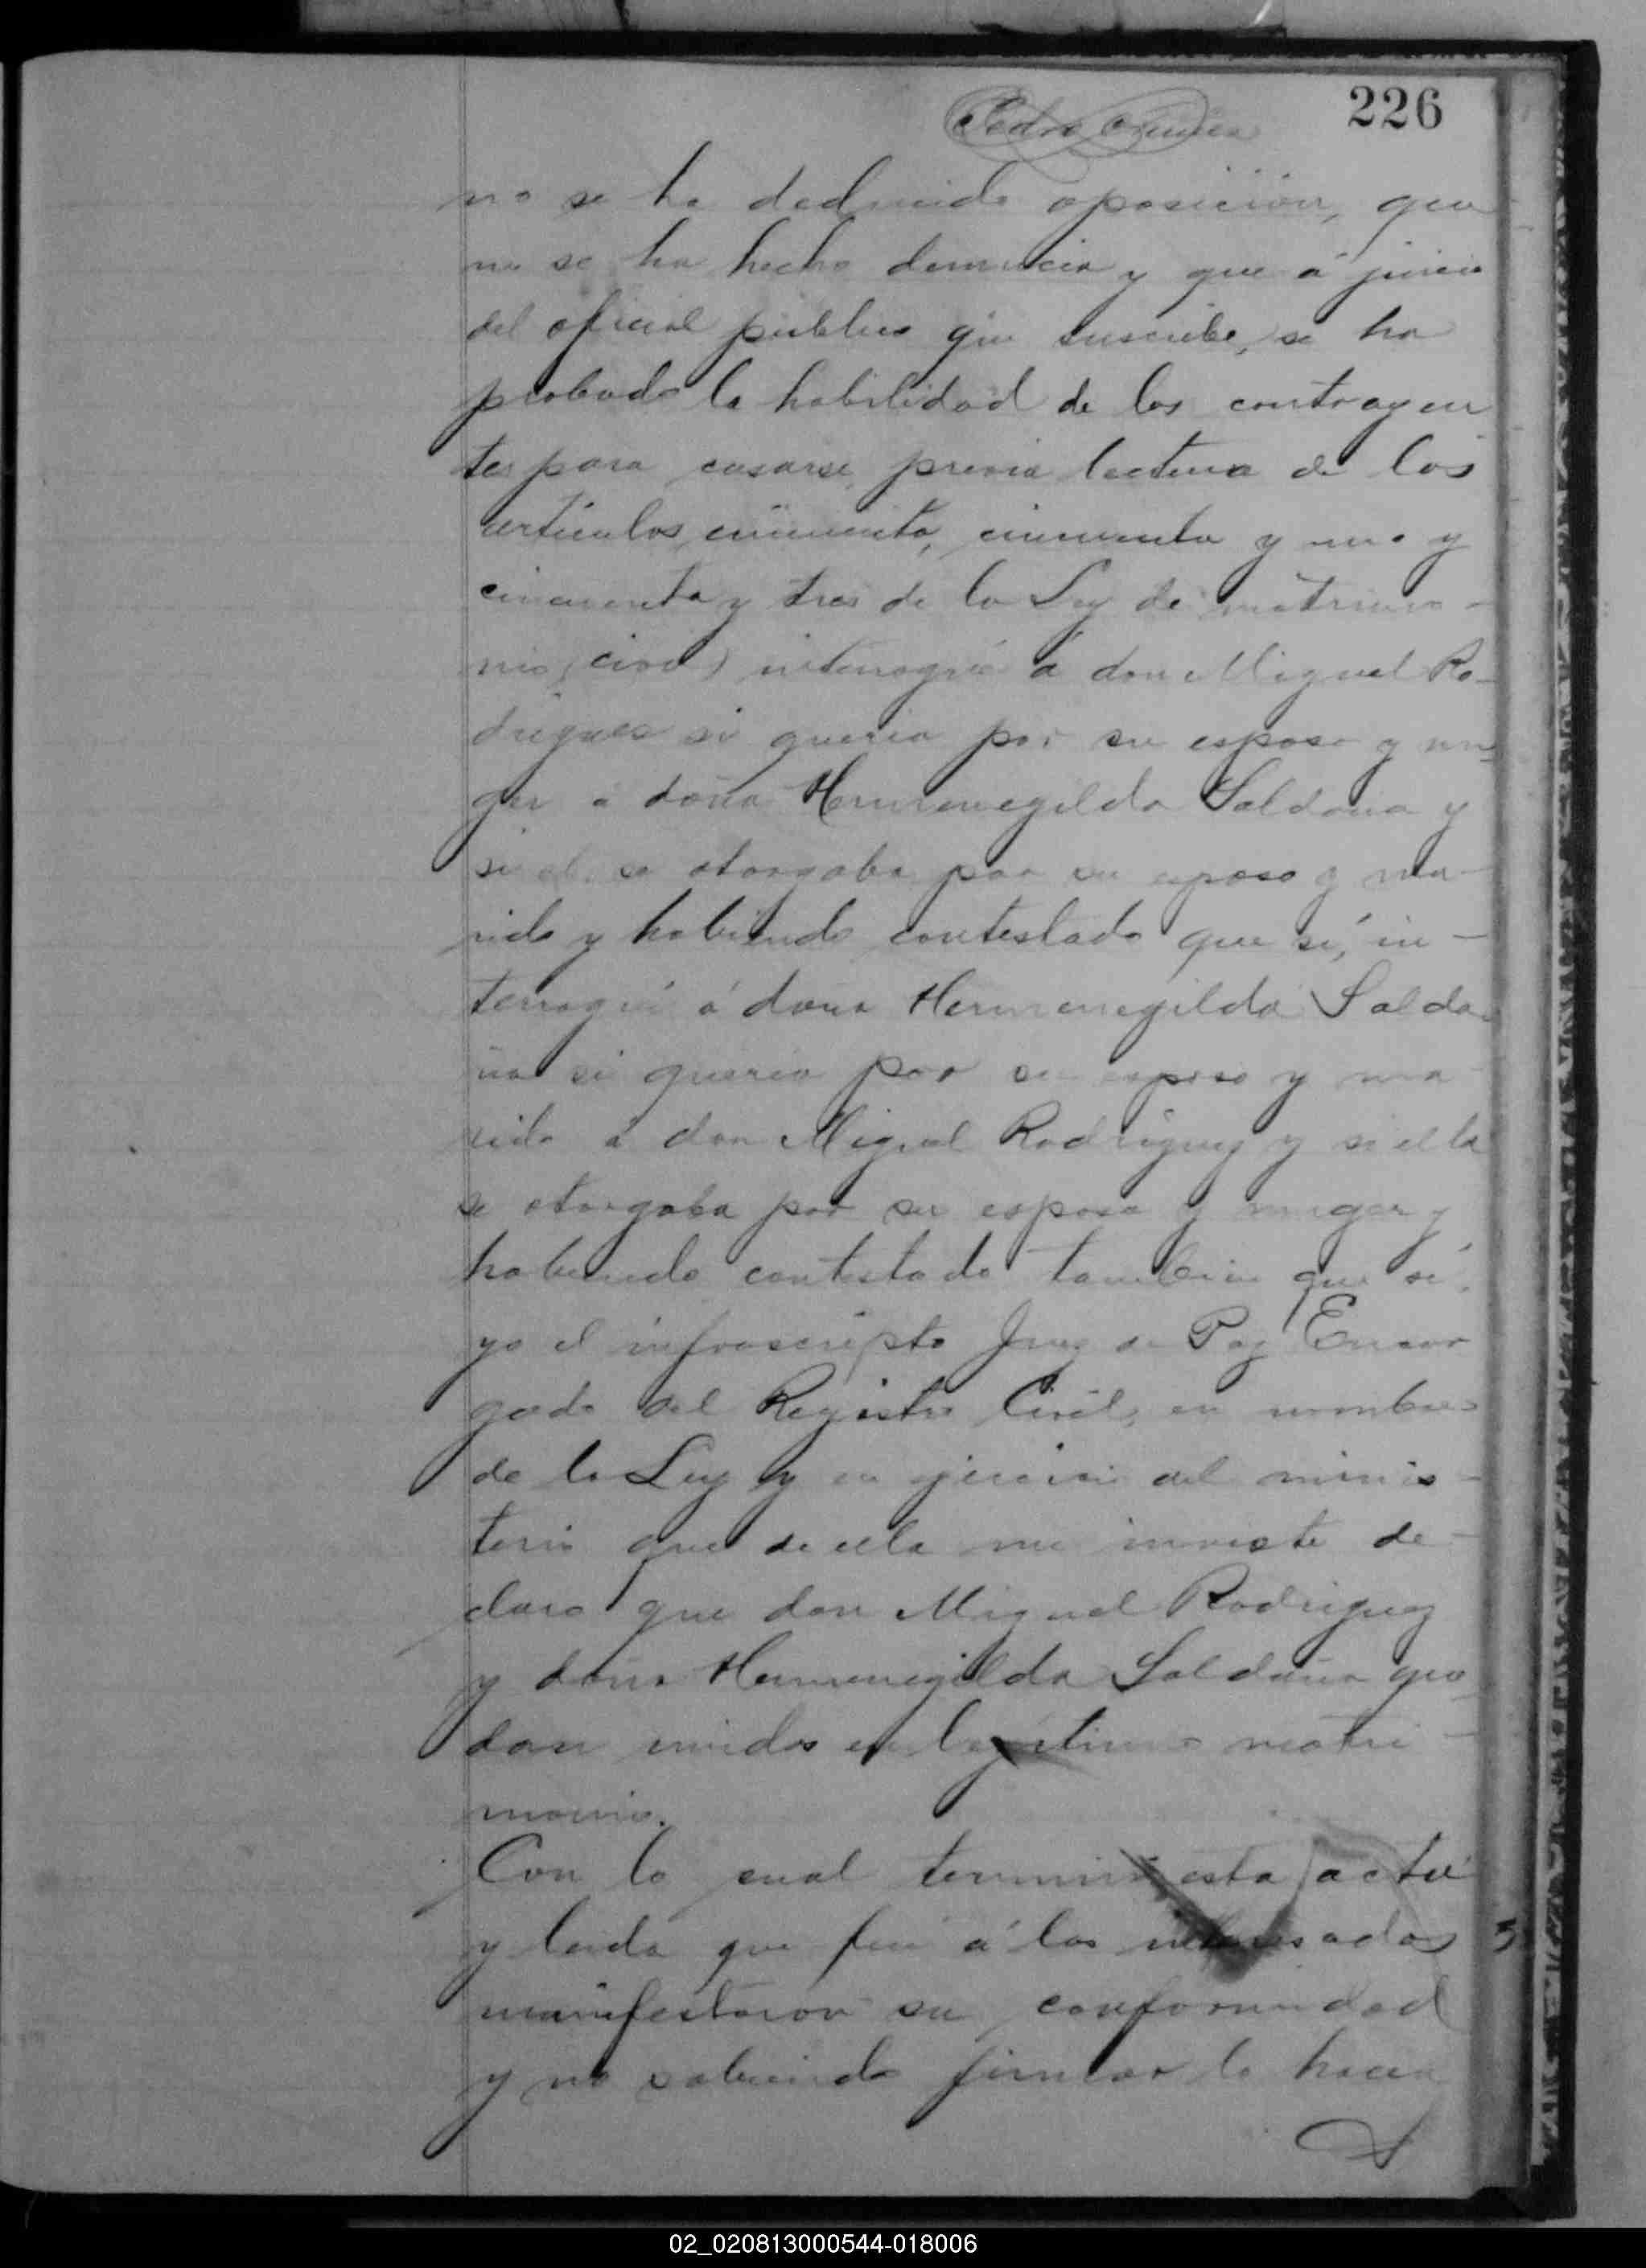 226
no se ha deducido oposición, que
no se ha hecho denuncia y que á juicio
del oficial público que suscribe, se ha
probado la habilidad de los contrayen
tes para casarse, previa lectura de los
artículos cincuenta, cincuenta y uno y
cincuenta y tres de la Ley de matrimo-
nio civil, interrogué á don Miguel Ro-
driguez si queria por su esposa y mu
ger á doña Hermenegilda Saldaña y
si el se otorgaba por su esposo y ma-
rido y habiendo contestado que sí, in-
terrogué á doña Hermenegilda Salda-
ña si queria por su esposo y ma
rido á don Miguel Rodriguez y si ella
se otorgaba por su esposa y muger y
habiendo contestado tambien que sí,
yo el infrascripto Juez de Paz Encar
gado del Registro Civil, en nombre
de la Ley y en ejercicio del minis-
terio que de ella me inviste de-
claro que don Miguel Rodriguez
y doña Hermenegilda Saldaña que
dan unidos en legítimo matri-
monio.
Con lo cual terminó esta acta
y leida que fue á los interesados
manifestaron su conformidad
y no sabiendo firmar lo hacen
02_020813000544-018006